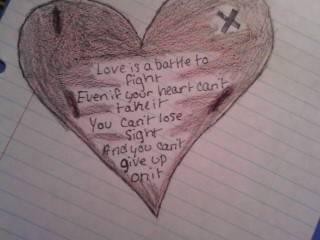 Love is a battle to
fight
Even if your heart can't
take it
You can't lose
sight
And you can't
give up
on it